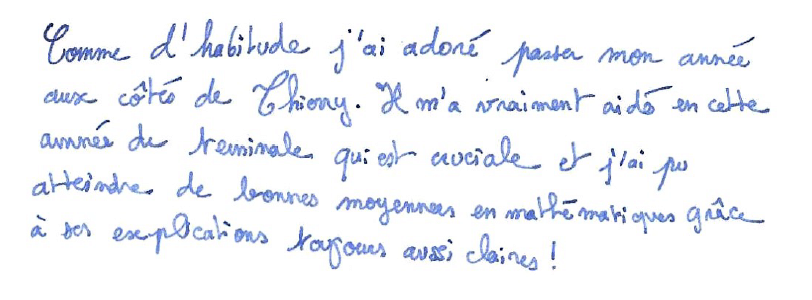 Comme d'habitude j'ai adoré passer mon année
aux côtés de Thierry. Il m'a vraiment aidé en cette
année de terminale qui est cruciale et j'ai pu
atteindre de bonnes moyennes en mathématiques grâce
à ses explications toujours aussi claires !